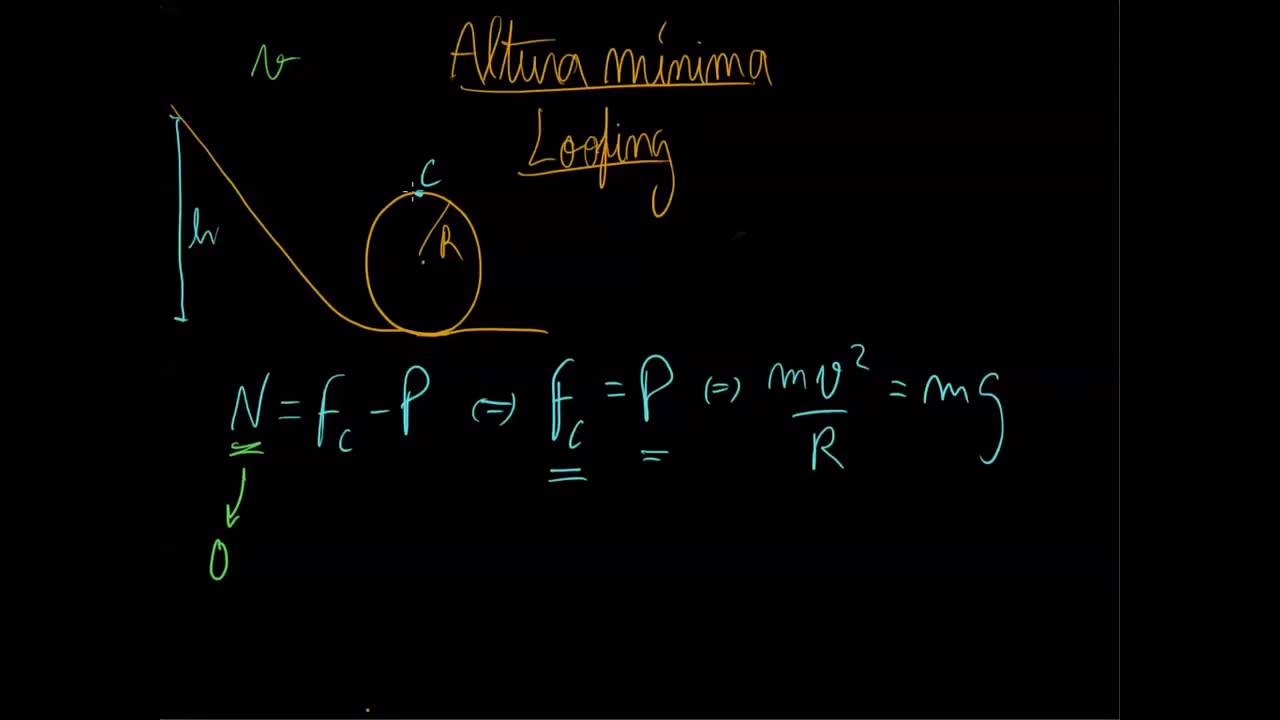 v
Altura mínima
Looping
C
h
R
N = F_C - P ⇔ F_C = P ⇔ mv²/R = mg
0